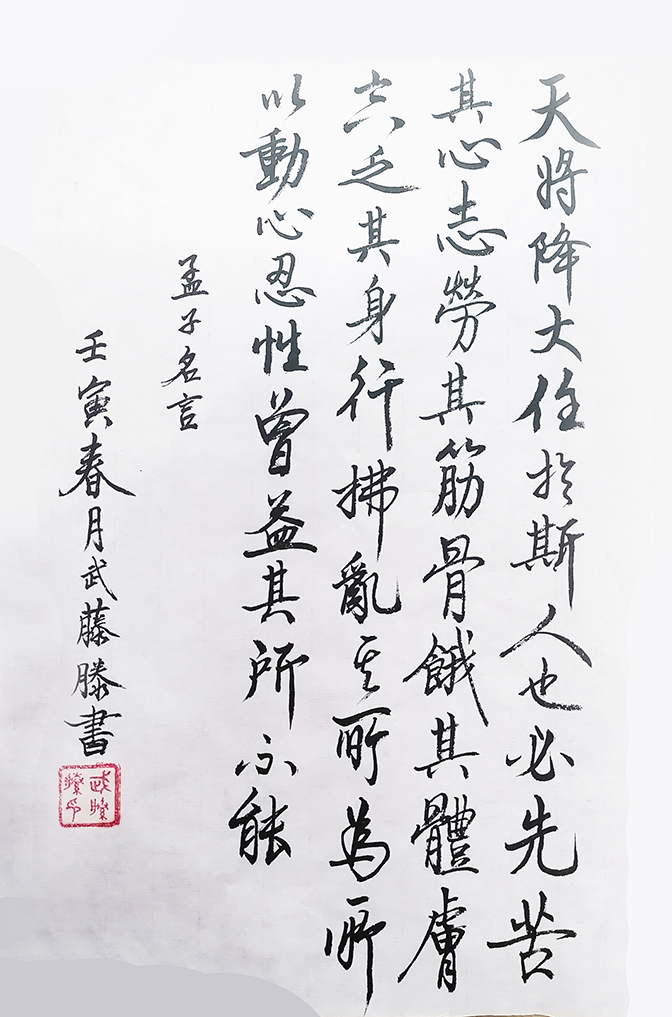 天將降大任於斯人也必先苦
其心志勞其筋骨餓其體膚
空乏其身行拂亂其所為所
以動心忍性曾益其所不能
孟子名言
壬寅春月武藤滕書